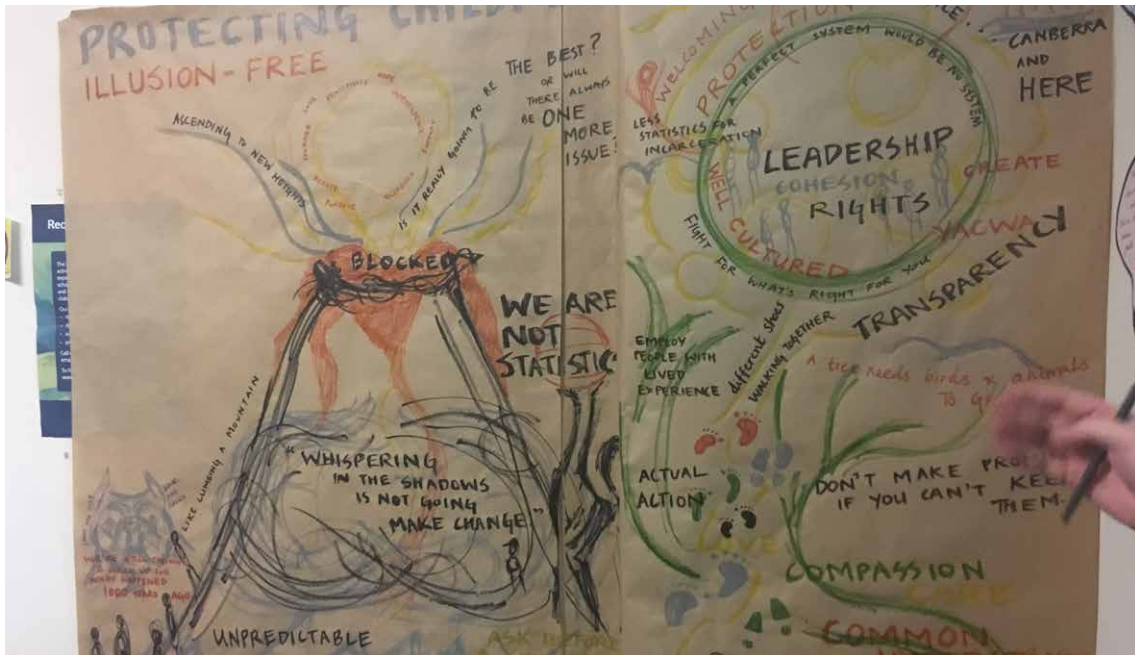 PROTECTING
ILLUSION-FREE
ASCENDING TO NEW HEIGHTS
IS IT REALLY GOING TO BE
THE BEST?
OR WILL
THERE ALWAYS
BE ONE
MORE
ISSUE?
BLOCKED
WE ARE
NOT
STATISTIC
LIKE CLIMBING A MOUNTAIN
"WHISPERING
IN THE SHADOWS
IS NOT GOING
MAKE CHANGE"
WHAT HAPPENED
1000 YEARS AGO
UNPREDICTABLE
WELCOMING
PROTECTION
A PERFECT SYSTEM WOULD BE NO SYSTEM
CANBERRA
AND
HERE
LESS
STATISTICS FOR
INCARCERATION
LEADERSHIP
COHESION
RIGHTS
WELL CULTURED
CREATE
YACWA
TRANSPARENCY
FIGHT FOR WHAT'S RIGHT FOR YOU
EMPLOY
PEOPLE WITH
LIVED
EXPERIENCE
different shoes
WALKING TOGETHER
A tree needs birds & animals
TO
ACTUAL
ACTION
DON'T MAKE
IF YOU CAN'T KEEP
THEM
LOVE
COMPASSION
CARE
COMMON